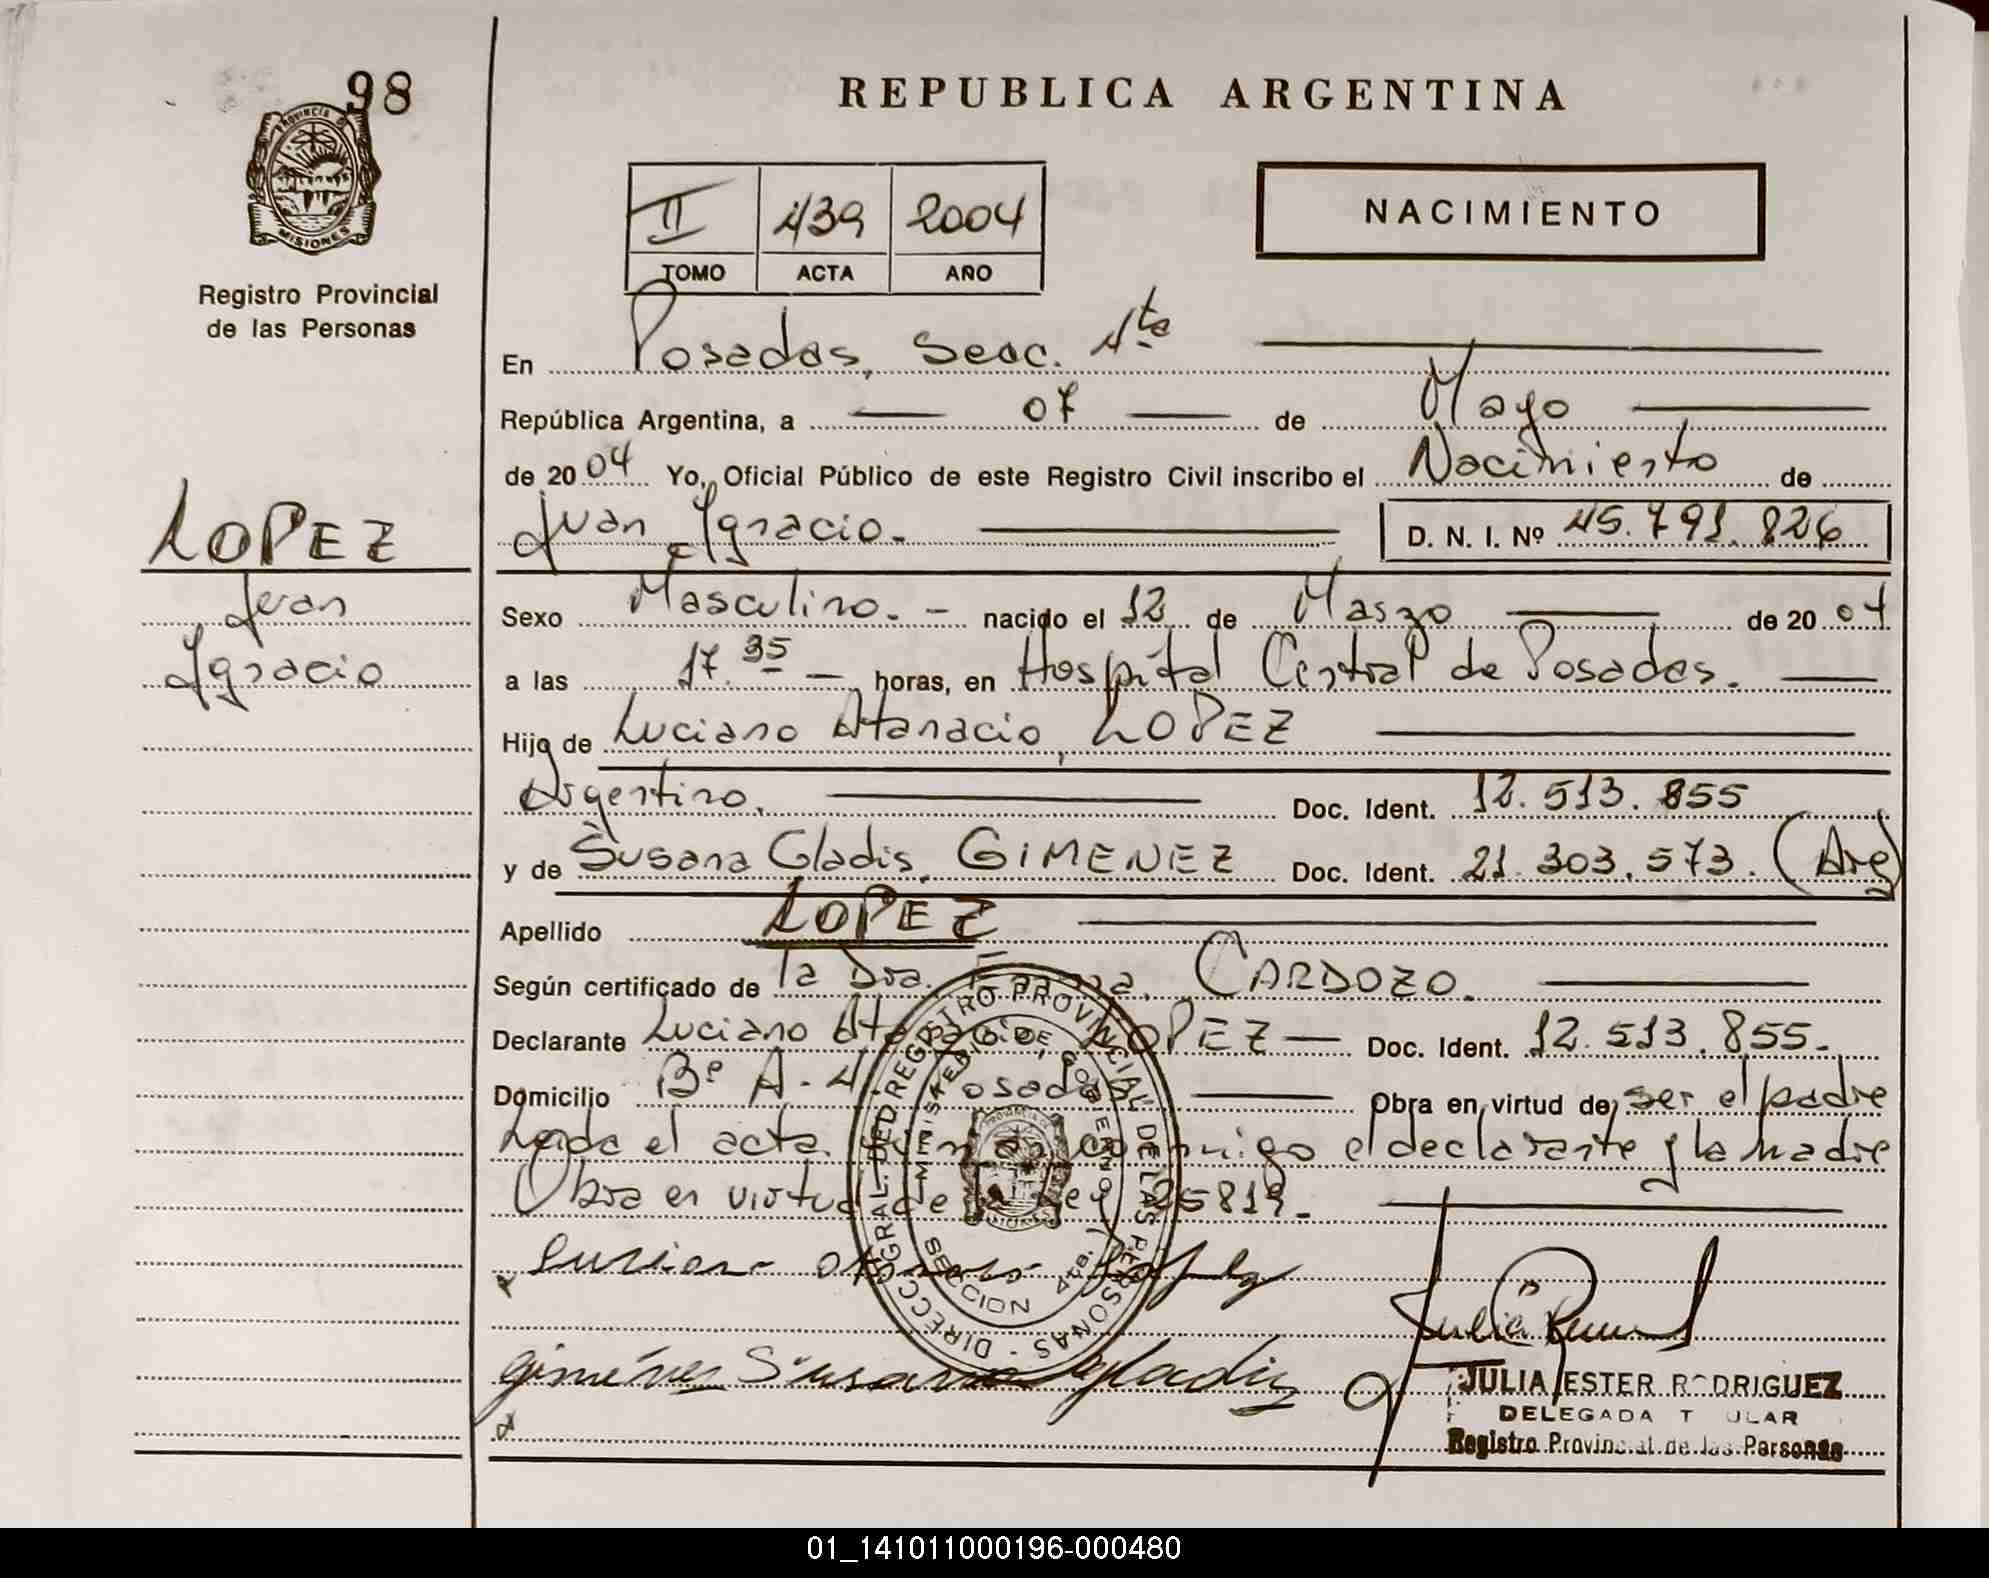 98
REPUBLICA ARGENTINA
PROVINCIA DE
MISIONES
Registro Provincial
de las Personas
II 439 2004
TOMO ACTA AÑO
NACIMIENTO
En Posadas, Secc. 4ta
República Argentina, a 07 de Mayo
de 2004 Yo, Oficial Público de este Registro Civil inscribo el Nacimiento de
Juan Ignacio. D. N. I. Nº 45.791.826
LOPEZ
Juan
Ignacio
Sexo Masculino. - nacido el 12 de Marzo de 2004
a las 17.35 horas, en Hospital Central de Posadas.
Hijo de Luciano Atanacio, LOPEZ
Argentino. Doc. Ident. 12.513.855
y de Susana Gladis, GIMENEZ Doc. Ident. 21.303.573. (Arg)
Apellido LOPEZ
Según certificado de la Dra. CARDOZO.
Declarante Luciano Atanacio, LOPEZ Doc. Ident. 12.513.855.
Domicilio Bº A-4 Posadas Obra en virtud de ser el padre
Leida el acta conmigo el declarante y la madre
Obra en virtud de Ley 25819.
Luciano Lopez
Giménez Susana Gladis
DIRECC. GRAL. DEL REGISTRO PROVINCIAL DE LAS PERSONAS
MINISTERIO DE GOBIERNO
SECCION 4ta.
JULIA ESTER RODRIGUEZ
DELEGADA T ULAR
Registro Provincial de las Personas
01_141011000196-000480